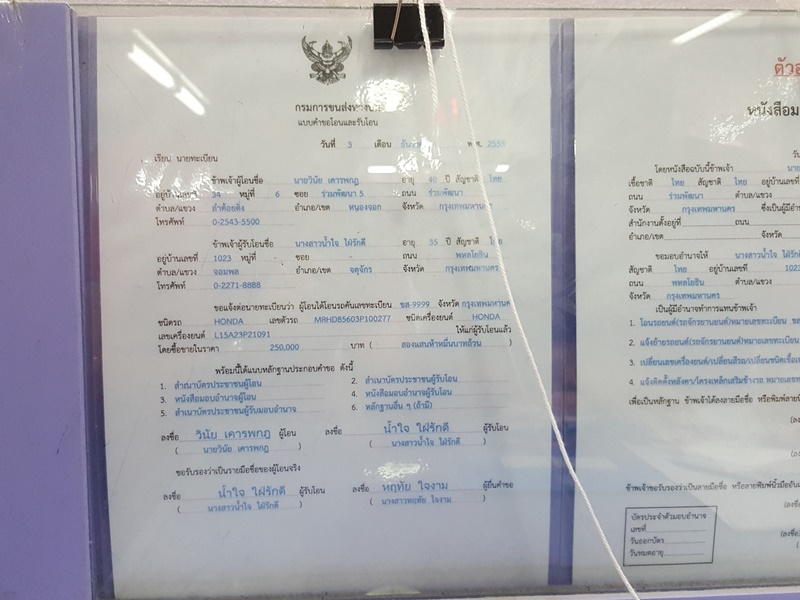 กรมการขนส่งทางบก
แบบคำขอโอนและรับโอน
วันที่ 3 เดือน พ.ศ.
เรียน นายทะเบียน
ข้าพเจ้าผู้โอนชื่อ นายวินัย เคารพกฎ อายุ 40 ปี สัญชาติ ไทย
อยู่บ้านเลขที่ 54 หมู่ที่ 6 ซอย ร่วมพัฒนา 5 ถนน ร่วมพัฒนา
ตำบล/แขวง ลำต้อยติ่ง อำเภอ/เขต หนองจอก จังหวัด กรุงเทพมหานคร
โทรศัพท์ 0-2543-5500
ข้าพเจ้าผู้รับโอนชื่อ นางสาวน้ำใจ ใฝ่รักดี อายุ 35 ปี สัญชาติ ไทย
อยู่บ้านเลขที่ 1023 หมู่ที่ ซอย ถนน พหลโยธิน
ตำบล/แขวง จอมพล อำเภอ/เขต จตุจักร จังหวัด กรุงเทพมหานคร
โทรศัพท์ 0-2271-8888
ขอแจ้งต่อนายทะเบียนว่า ผู้โอนได้โอนรถคันเลขทะเบียน ขส-9999 จังหวัด กรุงเทพมหานคร
ชนิดรถ HONDA เลขตัวรถ MRHDB5603P100277 ชนิดเครื่องยนต์ HONDA
เลขเครื่องยนต์ L15A23P21091 ให้แก่ผู้รับโอนแล้ว
โดยซื้อขายในราคา 250,000 บาท ( สองแสนห้าหมื่นบาทล้วน )
พร้อมนี้ได้แนบหลักฐานประกอบคำขอ ดังนี้
1. สำเนาบัตรประชาชนผู้โอน 2. สำเนาบัตรประชาชนผู้รับโอน
3. หนังสือมอบอำนาจผู้โอน 4. หนังสือมอบอำนาจผู้รับโอน
5. สำเนาบัตรประชาชนผู้รับมอบอำนาจ 6. หลักฐานอื่น ๆ (ถ้ามี)
ลงชื่อ วินัย เคารพกฎ ผู้โอน ลงชื่อ น้ำใจ ใฝ่รักดี ผู้รับโอน
( นายวินัย เคารพกฎ ) ( นางสาวน้ำใจ ใฝ่รักดี )
ขอรับรองว่าเป็นลายมือชื่อของผู้โอนจริง
ลงชื่อ น้ำใจ ใฝ่รักดี ผู้รับโอน ลงชื่อ หฤทัย ใจงาม ผู้ยื่นคำขอ
( นางสาวน้ำใจ ใฝ่รักดี ) ( นางสาวหฤทัย ใจงาม )
โดยหนังสือฉบับนี้ข้าพเจ้า
เชื้อชาติ ไทย สัญชาติ ไทย อยู่บ้านเลขที่
ถนน ร่วมพัฒนา ตำบล/แขวง
จังหวัด กรุงเทพมหานคร
สำนักงานตั้งอยู่ที่ ถนน
อำเภอ/เขต จังหวัด
ขอมอบอำนาจให้ นางสาวน้ำใจ
สัญชาติ ไทย อยู่บ้านเลขที่ 1023
ถนน พหลโยธิน ตำบล/แขวง
จังหวัด กรุงเทพมหานคร
เป็นผู้มีอำนาจทำการแทนข้าพเจ้า
1. โอนรถยนต์(รถจักรยานยนต์)หมายเลขทะเบียน
2. แจ้งย้ายรถยนต์(รถจักรยานยนต์)หมายเลขทะเบียน
3. เปลี่ยนเลขเครื่องยนต์/เปลี่ยนสีรถ/เปลี่ยนชนิดเชื้อ
4. แจ้งติดตั้งหลังคา/โครงเหล็กเสริมข้างรถ
เพื่อเป็นหลักฐาน ข้าพเจ้าได้ลงลายมือชื่อ
ข้าพเจ้าขอรับรองว่าเป็นลายมือชื่อ
บัตรประจำตัวมอบอำนาจ
เลขที่
วันออกบัตร
วันหมดอายุ